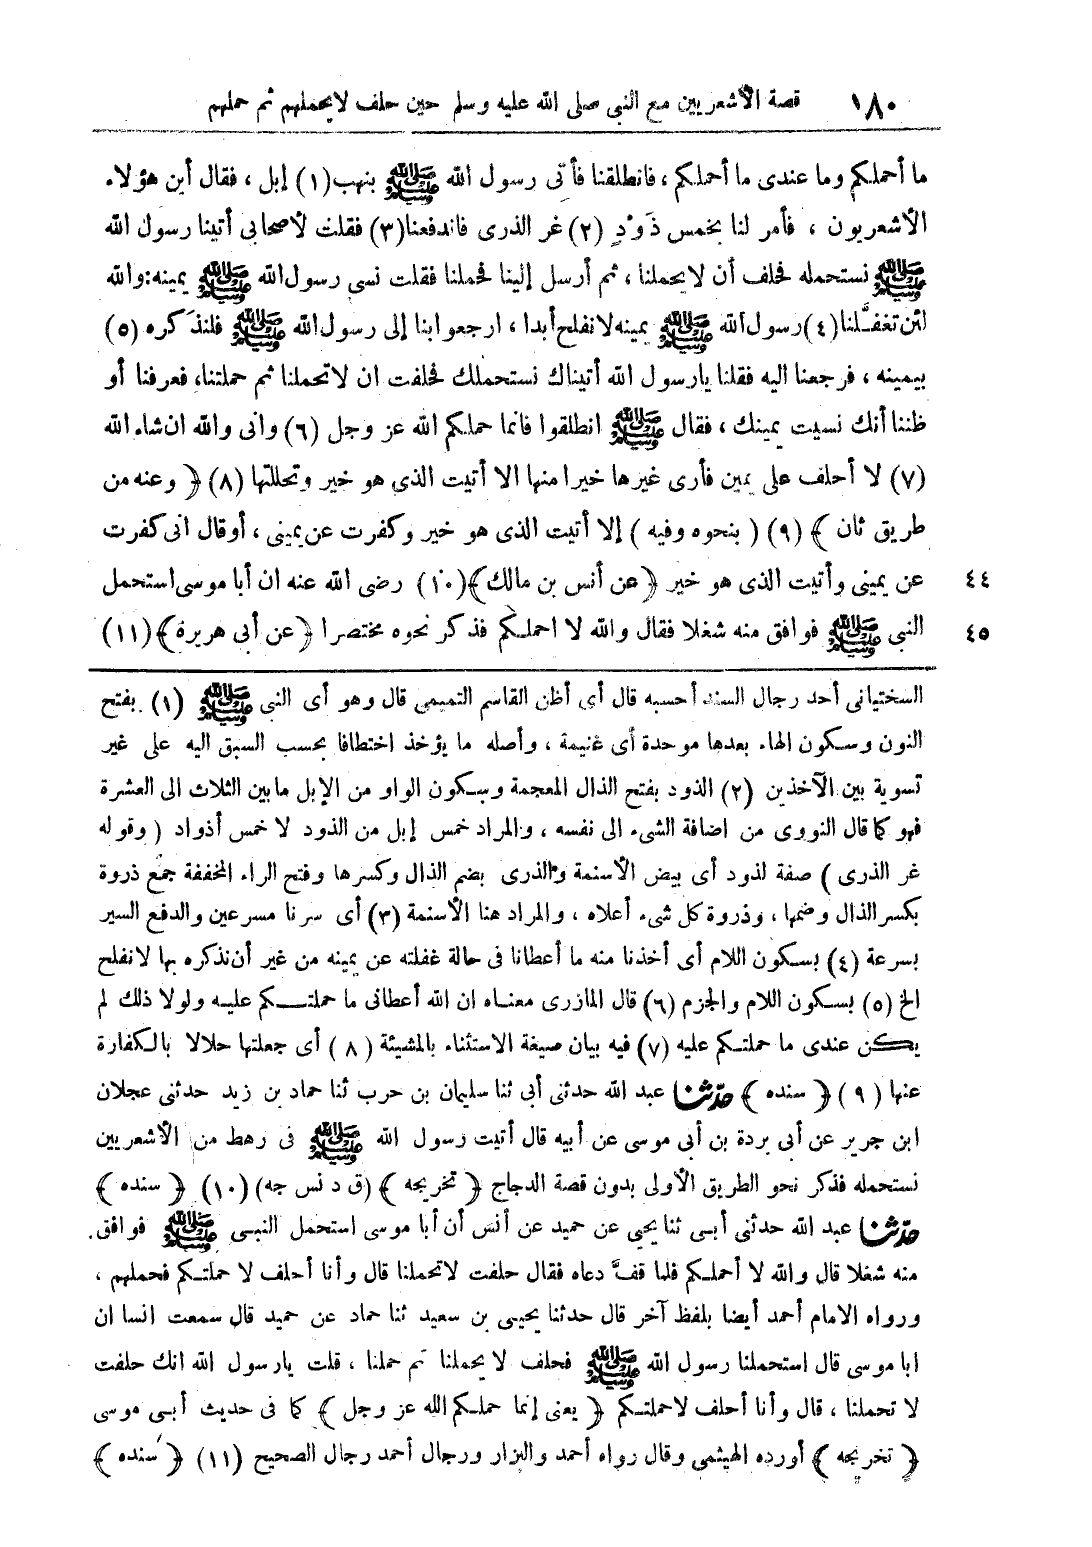 ١٨٠ قصة الأشعريين مع النبى صلى الله عليه وسلم حين حلف لايحملهم ثم حملهم
ما أحملكم وما عندى ما أحملكم، فانطلقنا فأتى رسول الله ﷺ بنهب(١) إبل، فقال أين هؤلاء
الأشعريون، فأمر لنا بخمس ذَوْدٍ (٢) غر الذرى فاندفعنا(٣) فقلت لأصحابى أتينا رسول الله
ﷺ نستحمله فحلف أن لايحملنا، ثم أرسل إلينا فحملنا فقلت نسى رسول الله ﷺ يمينه: والله
لئن تغفَّلنا(٤) رسول الله ﷺ يمينه لانفلح أبدا، ارجعوا بنا إلى رسول الله ﷺ فلنذكره (٥)
بيمينه، فرجعنا اليه فقلنا يارسول الله أتيناك نستحملك فحلفت ان لاتحملنا ثم حملتنا، فعرفنا أو
ظننا أنك نسيت يمينك، فقال ﷺ انطلقوا فانما حملكم الله عز وجل (٦) وانى والله ان شاء الله
(٧) لا أحلف على يمين فأرى غيرها خيرا منها الا أتيت الذى هو خير وتحللتها (٨) ﴿ وعنه من
طريق ثان ﴾ (٩) ( بنحوه وفيه ) إلا أتيت الذى هو خير وكفرت عن يمينى، أوقال انى كفرت
عن يمينى وأتيت الذى هو خير ﴿ عن أنس بن مالك ﴾(١٠) رضى الله عنه ان أبا موسى استحمل ٤٤
النبى ﷺ فوافق منه شغلا فقال والله لا احملكم فذكر نحوه مختصرا ﴿ عن أبى هريرة ﴾(١١) ٤٥
السختيانى أحد رجال السند أحسبه قال أى أظن القاسم التميمى قال وهو أى النبى ﷺ (١) بفتح
النون وسكون الهاء بعدها موحدة أى غنيمة، وأصله ما يؤخذ اختطافا بحسب السبق اليه على غير
تسوية بين الآخذين (٢) الذود بفتح الذال المعجمة وسكون الواو من الإبل مابين الثلاث الى العشرة
فهو كما قال النووى من اضافة الشىء الى نفسه، والمراد خمس إبل من الذود لا خمس أذواد ( وقوله
غر الذرى ) صفة لذود أى بيض الأسنمة والذرى بضم الذال وكسرها وفتح الراء المخففة جمع ذروة
بكسر الذال وضمها، وذروة كل شىء أعلاه، والمراد هنا الأسنمة (٣) أى سرنا مسرعين والدفع السير
بسرعة (٤) بسكون اللام أى أخذنا منه ما أعطانا فى حالة غفلته عن يمينه من غير أن نذكره بها لانفلح
الخ (٥) بسكون اللام والجزم (٦) قال المازرى معناه ان الله أعطانى ما حملتكم عليه ولولا ذلك لم
يكن عندى ما حملتكم عليه (٧) فيه بيان صيغة الاستثناء بالمشيئة (٨) أى جعلتها حلالا بالكفارة
عنها (٩) ﴿ سنده ﴾ حدّثنا عبد الله حدثنى أبى ثنا سليمان بن حرب ثنا حماد بن زيد حدثنى عجلان
ابن جرير عن أبى بردة بن أبى موسى عن أبيه قال أتيت رسول الله ﷺ فى رهط من الأشعريين
نستحمله فذكر نحو الطريق الأولى بدون قصة الدجاج ﴿ تخريجه ﴾ (ق د نس جه) (١٠) ﴿ سنده ﴾
حدّثنا عبد الله حدثنى أبى ثنا يحيى عن حميد عن أنس أن أبا موسى استحمل النبى ﷺ فوافق
منه شغلا قال والله لا أحملكم فلما قفَّ دعاه فقال حلفت لاتحملنا قال وأنا أحلف لا حملتكم فحملهم،
ورواه الامام أحمد أيضا بلفظ آخر قال حدثنا يحيى بن سعيد ثنا حماد عن حميد قال سمعت انسا ان
ابا موسى قال استحملنا رسول الله ﷺ فحلف لا يحملنا ثم حملنا، قلت يارسول الله انك حلفت
لا تحملنا، قال وأنا أحلف لاحملتكم ﴿ يعنى إنما حملكم الله عز وجل ﴾ كما فى حديث أبى موسى
﴿ تخريجه ﴾ أورده الهيثمى وقال رواه أحمد والبزار ورجال أحمد رجال الصحيح (١١) ﴿ سنده ﴾